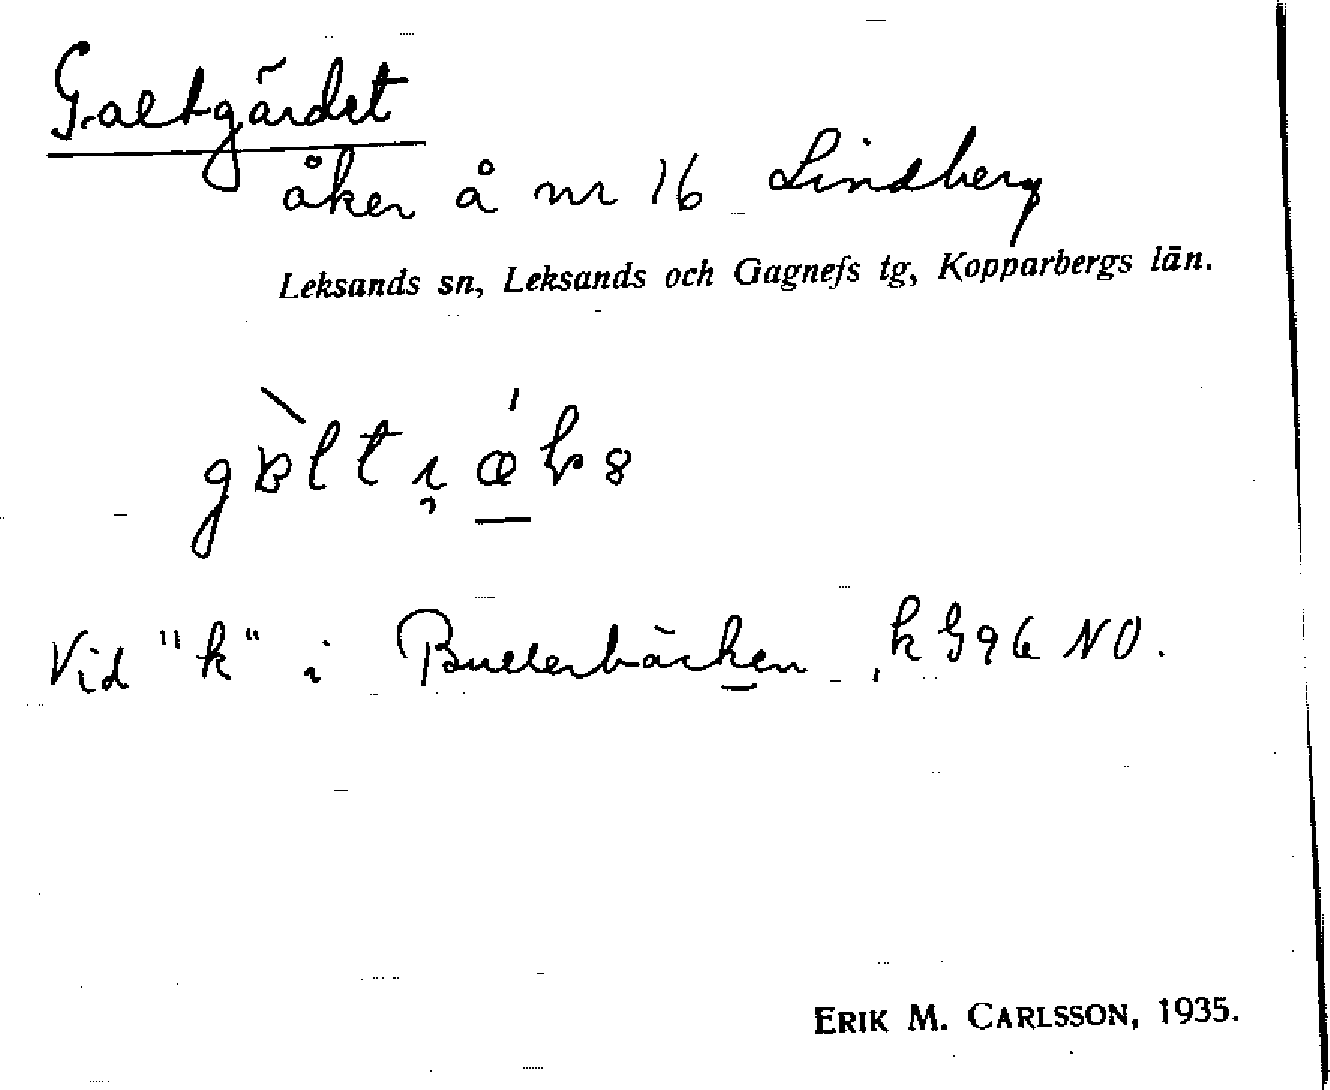 Galtgärdet
åker å nr 16 Lindberg
Leksands sn, Leksands och Gagnefs tg, Kopparbergs län.
Vid "k" i Bullerbäcken, k G96 NO.
ERIK M. CARLSSON, 1935.